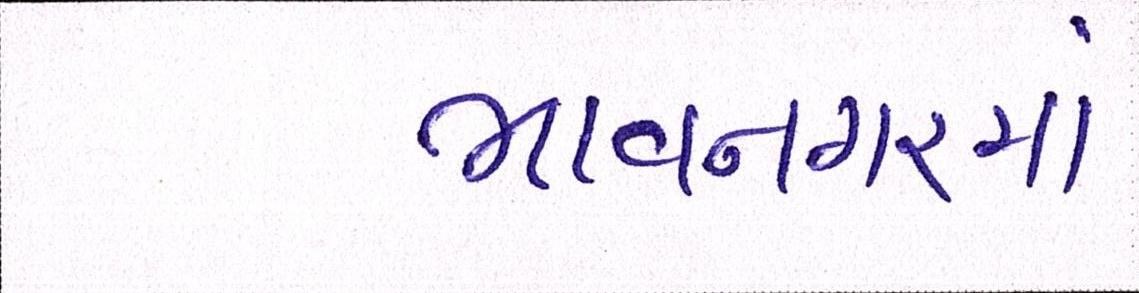 ભાવનગરમાં